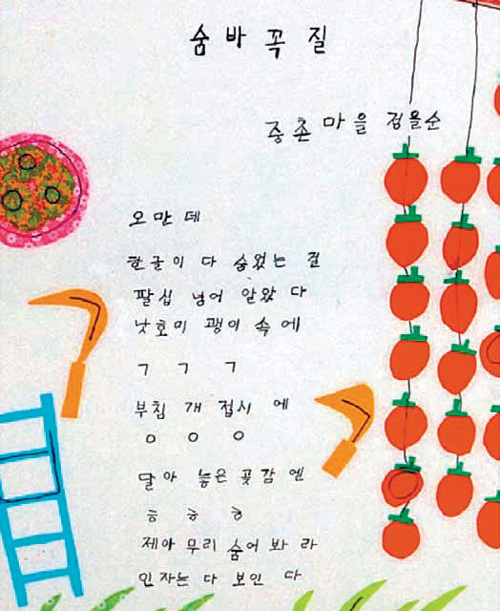 숨바꼭질
중촌마을 정을순
오만데
한글이 다 숨었는 걸
팔십 넘어 알았다
낫호미 괭이 속에
ㄱ ㄱ ㄱ
부침개 접시에
ㅇ ㅇ ㅇ
달아 놓은 곶감엔
ㅎ ㅎ ㅎ
제아무리 숨어 봐라
인자는 다 보인다